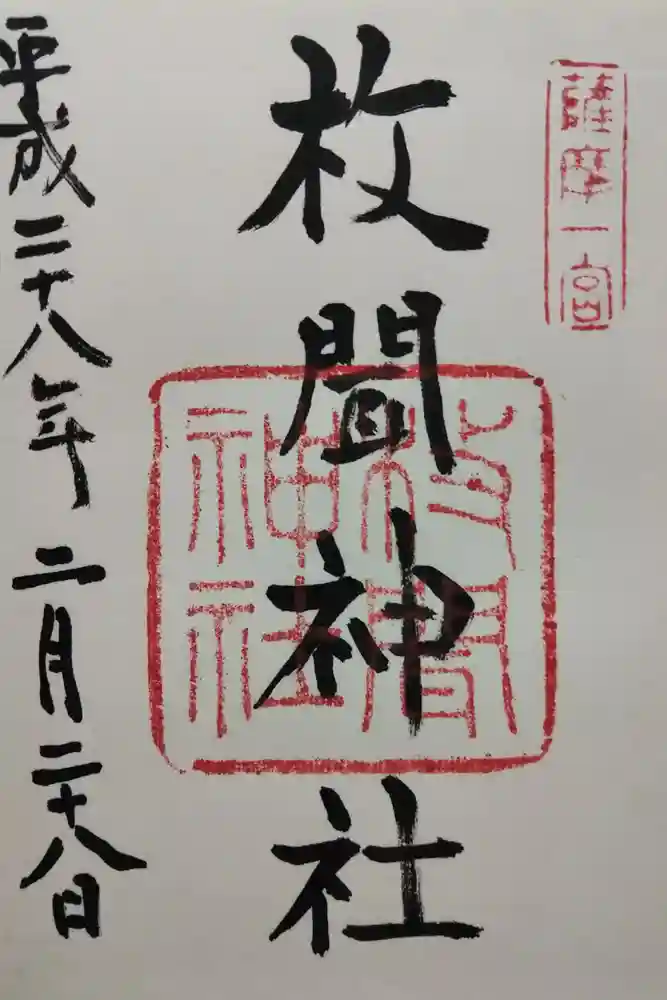 薩摩一宮
枚聞神社
枚聞神社
平成二十八年 二月二十八日